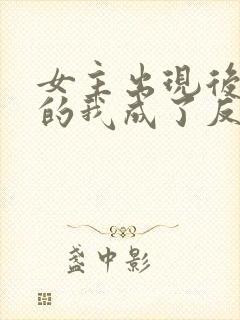 女主出現後
的我成了反
盞中影